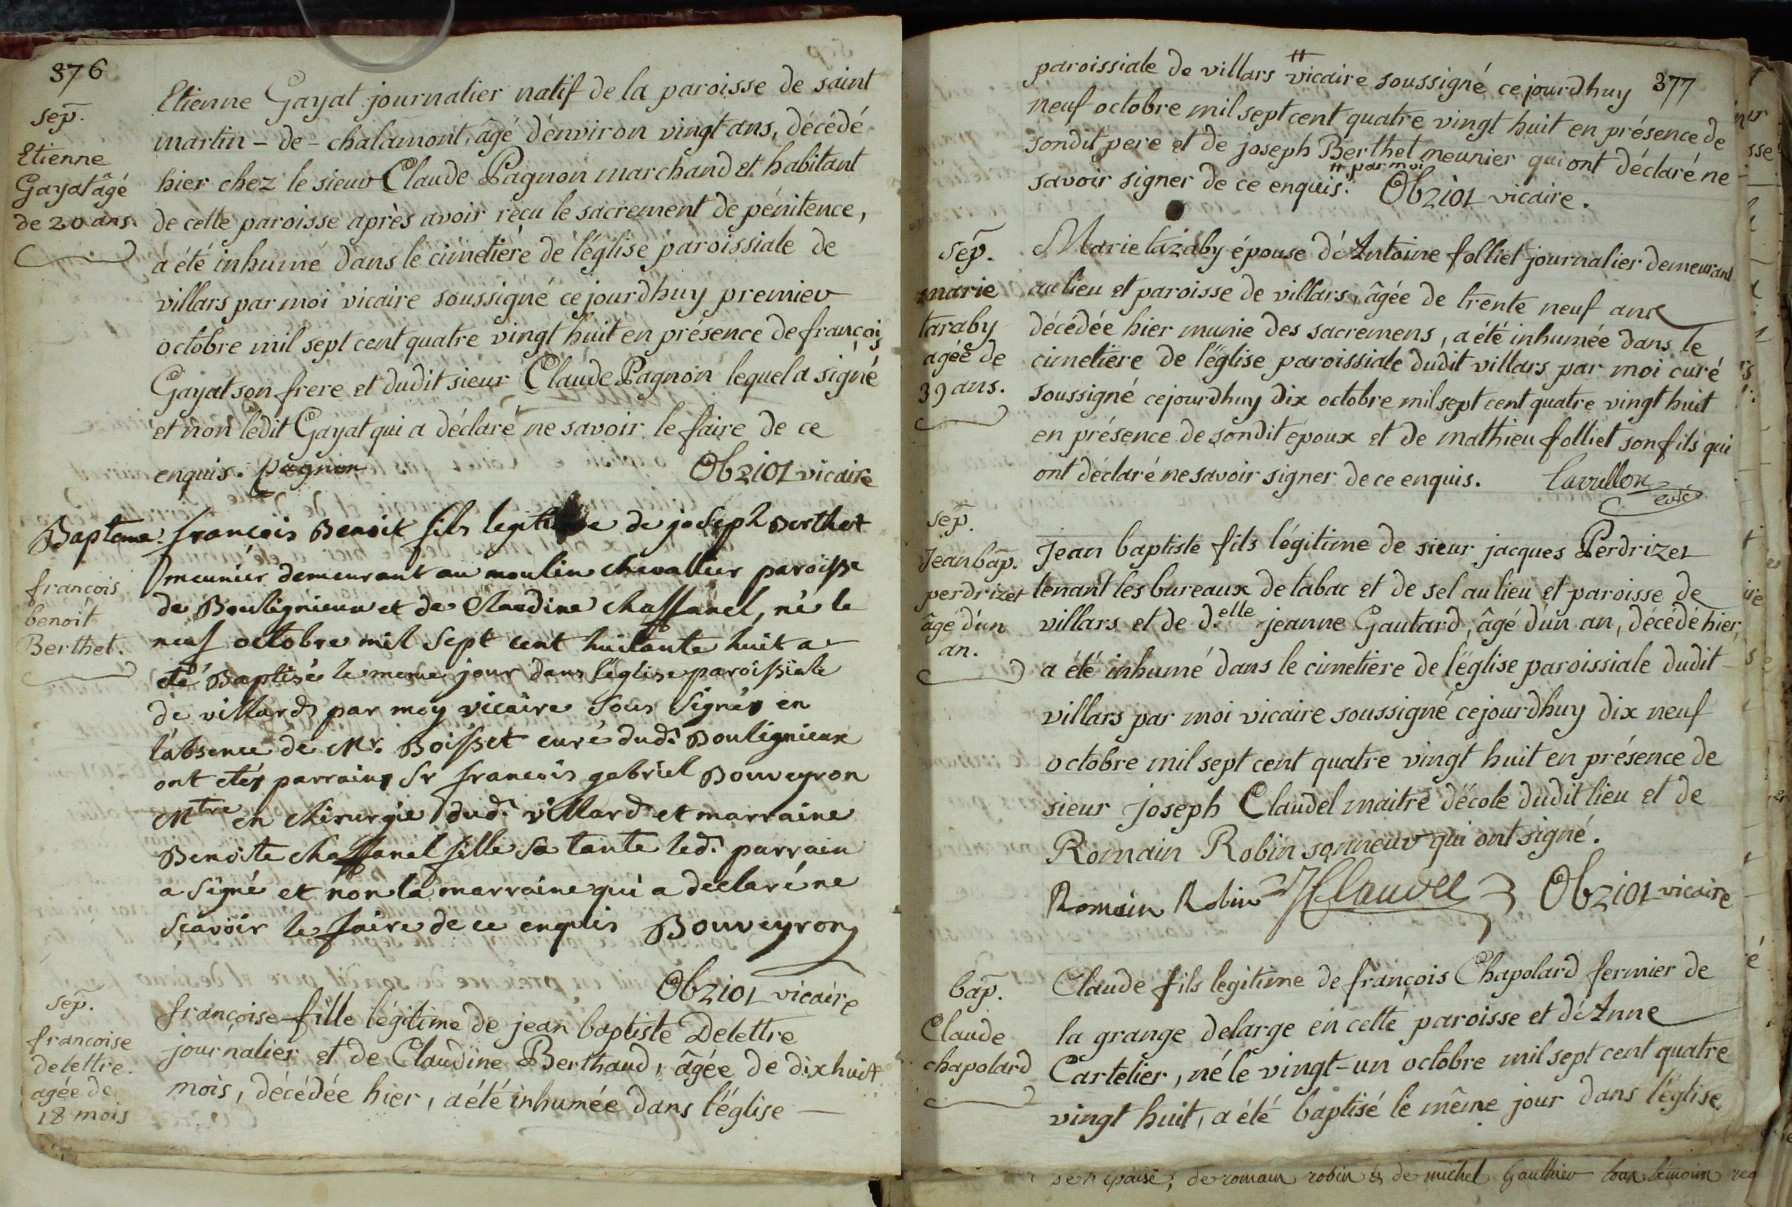 376
sep.
Etienne
Gayat âgé
de 20 ans.
Etienne Gayat journalier natif de la paroisse de saint
martin - de - chalamont, âgé d'environ vingt ans, décédé
hier chez le sieur Claude Pagnon marchand et habitant
de cette paroisse après avoir reçu le sacrement de pénitence,
a été inhumé dans le cimetière de l'église paroissiale de
villars par moi vicaire soussigné ce jourdhuy premier
octobre mil sept cent quatre vingt huit en présence de françois
Gayat son frere et dudit sieur Claude Pagnon lequel a signé
et non ledit Gayat qui a déclaré ne savoir le faire de ce
enquis. pagnon Obziol vicaire
Bapteme
françois
benoit
Berthet.
françois Benoit fils legitime de joseph Berthet
meunier demeurant au moulin chevallier paroisse
de Bouligneux et de Claudine Chassanel, né le
neuf octobre mil sept cent huitante huit a
eté Baptisés le meme jour dans l'église paroissiale
de villards par moy vicaire Sous Signés en
l'absence de Mr. Boisset curé dud. Bouligneux
ont etés parrains Sr françois gabriel Bouveyron
Mtre en chirurgie dud. villard et marraine
Benoite chassanel fille sa tante led. parrain
a Signé et non la marraine qui a declaré ne
sçavoir le faire de ce enquis Bouveyron
Obziol vicaire
sep.
francoise
delettre.
agée de
18 mois
françoise fille légitime de jean baptiste Delettre
journalier et de Claudine Berthaud, âgée de dix huit
mois, décédée hier, a été inhumée dans l'église
377
paroissiale de villars # vicaire soussigné ce jourdhuy
neuf octobre mil sept cent quatre vingt huit en présence de
sondit pere et de joseph Berthet meunier qui ont déclaré ne
# par moi
savoir signer de ce enquis. Obziol vicaire.
sep.
marie
taraby
agée de
39 ans.
Marie tazaby épouse d'Antoine folliet journalier demeurant
au lieu et paroisse de villars, âgée de trente neuf ans
décédée hier munie des sacremens, a été inhumée dans le
cimetière de l'église paroissiale dudit villars par moi curé
soussigné cejourdhuy dix octobre mil sept cent quatre vingt huit
en présence de sondit époux et de mathieu folliet son fils qui
ont déclaré ne savoir signer de ce enquis. Lavullon
curé
sep.
Jean bap.
perdrizet
âgé d'un
an.
Jean baptiste fils légitime de sieur jacques Perdrizet
tenant les bureaux de tabac et de sel au lieu et paroisse de
villars et de d.elle jeanne Gautard, âgé d'un an, décédé hier,
a été inhumé dans le cimetière de l'église paroissiale dudit
villars par moi vicaire soussigné cejourdhuy dix neuf
octobre mil sept cent quatre vingt huit en présence de
sieur joseph Claudel maitre d'école dudit lieu et de
Romain Robin sonneur qui ont signé.
Romain Robin J Claudel Obziol vicaire
bap.
Claude
chapolard
Claude fils legitime de françois Chapolard fermier de
la grange delarge en cette paroisse et d'Anne
Cartelier, né le vingt-un octobre mil sept cent quatre
vingt huit, a été baptisé le même jour dans l'église
de romain robin & de michel Gauthier